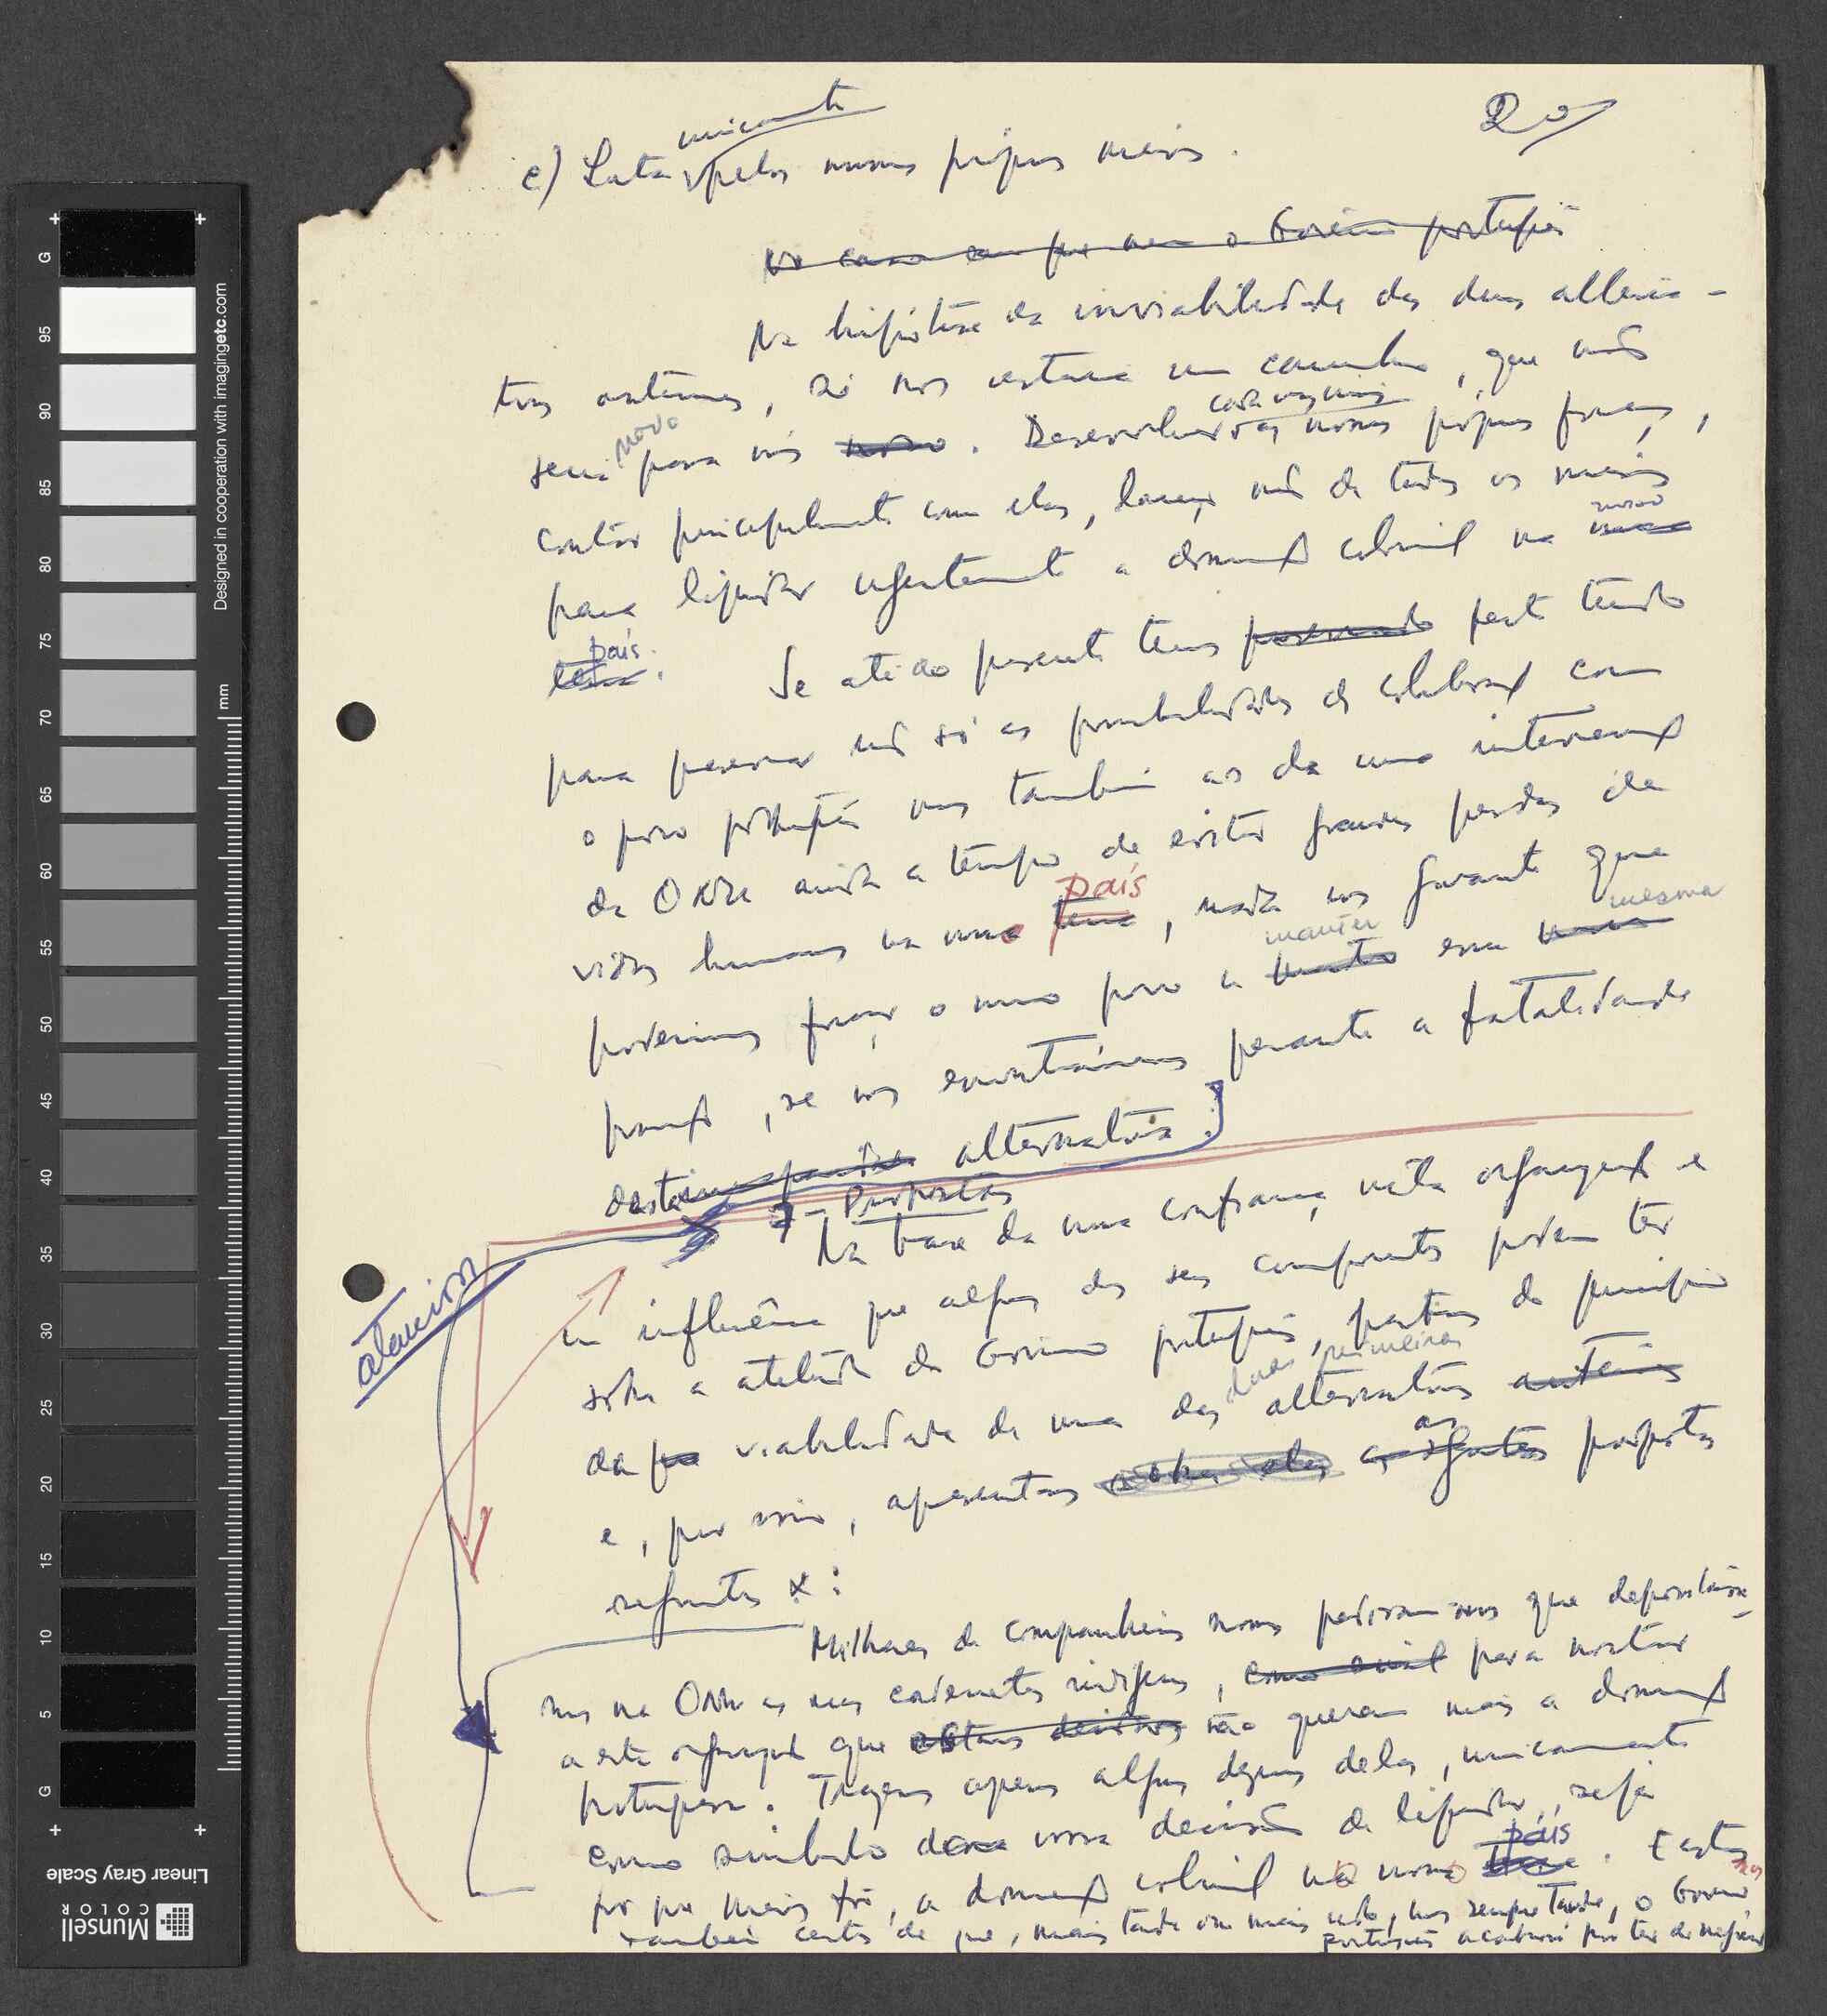 20
unicamente
c) Luta pelos nossos próprios meios.
No caso em que nem o Governo português
Na hipótese da inviabilidade das duas alterna-
tivas anteriores, só nos restaria um caminho, que não
cada vez mais
seria novo para nós novo. Desenvolver as nossas próprias forças,
contar principalmente com elas, lançar mão de todos os meios
nosso
para liquidar urgentemente a dominação colonial na nossa
país
terra. Se até ao presente temos procurado feito tudo
para preservar não só as possibilidades de colaboração com
o povo português mas também as da uma intervenção
da ONU ainda a tempo de evitar grandes perdas de
país
vidas humanas na nossa terra, nada nos garante que
manter mesma
poderíamos forçar o nosso povo a essa
posição, se nos encontrássemos perante a fatalidade
desta alternativa.]
7- Propostas
Na base da uma confiança nesta organização e
na influência que alguns dos seus componentes podem ter
sobre a atitude do Governo português, partimos do princípio
duas primeiras
da viabilidade de uma das alternativas anteriores
as
e, por isso, apresentamos sobre elas as seguintes propostas
seguintes x:
Milhares de companheiros nossos pediram-nos que depositásse-
mos na ONU as suas cadernetas indígenas, como sinal para mostrar
a esta organização que estamos decididos não querem mais a dominação
portuguesa. Trazemos apenas algumas dezenas delas, unicamente
como símbolo da nossa decisão de liquidar, seja
país
por que meios for, a dominação colonial na nossa terra. Estamos
também certos de que, mais tarde ou mais cedo, mas sempre tarde, o Governo
português acabará por ter de negociar